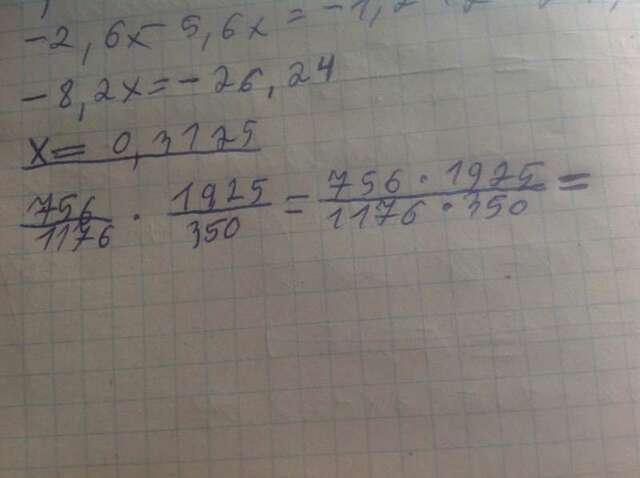 -2,6x-5,6x=-1,2
-8,2x=-26,24
x= 0,3125
756/1176 · 1925/350 = 756·1925/1176·350 =